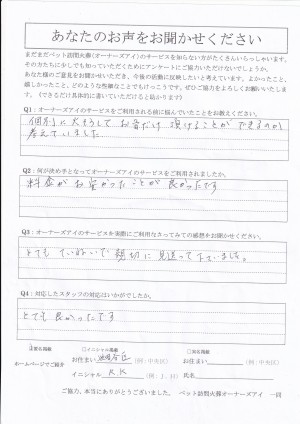 あなたのお声をお聞かせください
まだまだペット訪問火葬(オーナーズアイ)のサービスを知らない方がたくさんいらっしゃいます。
その方たちに少しでも知っていただくためにアンケートにご協力いただけないでしょうか。
あなた様のご意見をお聞かせいただき、今後の活動に反映したいと考えています。よかったこと、
嬉しかったこと、どのような些細なことでもけっこうです。ぜひご協力をよろしくお願いいたしま
す。(できるだけ具体的に書いていただけると助かります)
Q1:オーナーズアイのサービスをご利用される前に悩んでいたことをお教えください。
個別に火そうして お骨だけ 頂けることが できるのか
考えていました
Q2:何が決め手となってオーナーズアイのサービスをご利用されましたか。
料金がお安かったことが良かったです
Q3:オーナーズアイのサービスを実際にご利用なさってみての感想をお聞かせください。
とても ていねいで 親切に 見送って下さいました。
Q4:対応したスタッフの対応はいかがでしたか。
とても良かったです
イニシャル掲載
ホームページでご紹介
お住まい
(例:中央区)
お住まい
(例:中央区)
イニシャル K K
氏名
ご協力、本当にありがとうございました。 ペット訪問火葬オーナーズアイ 一同